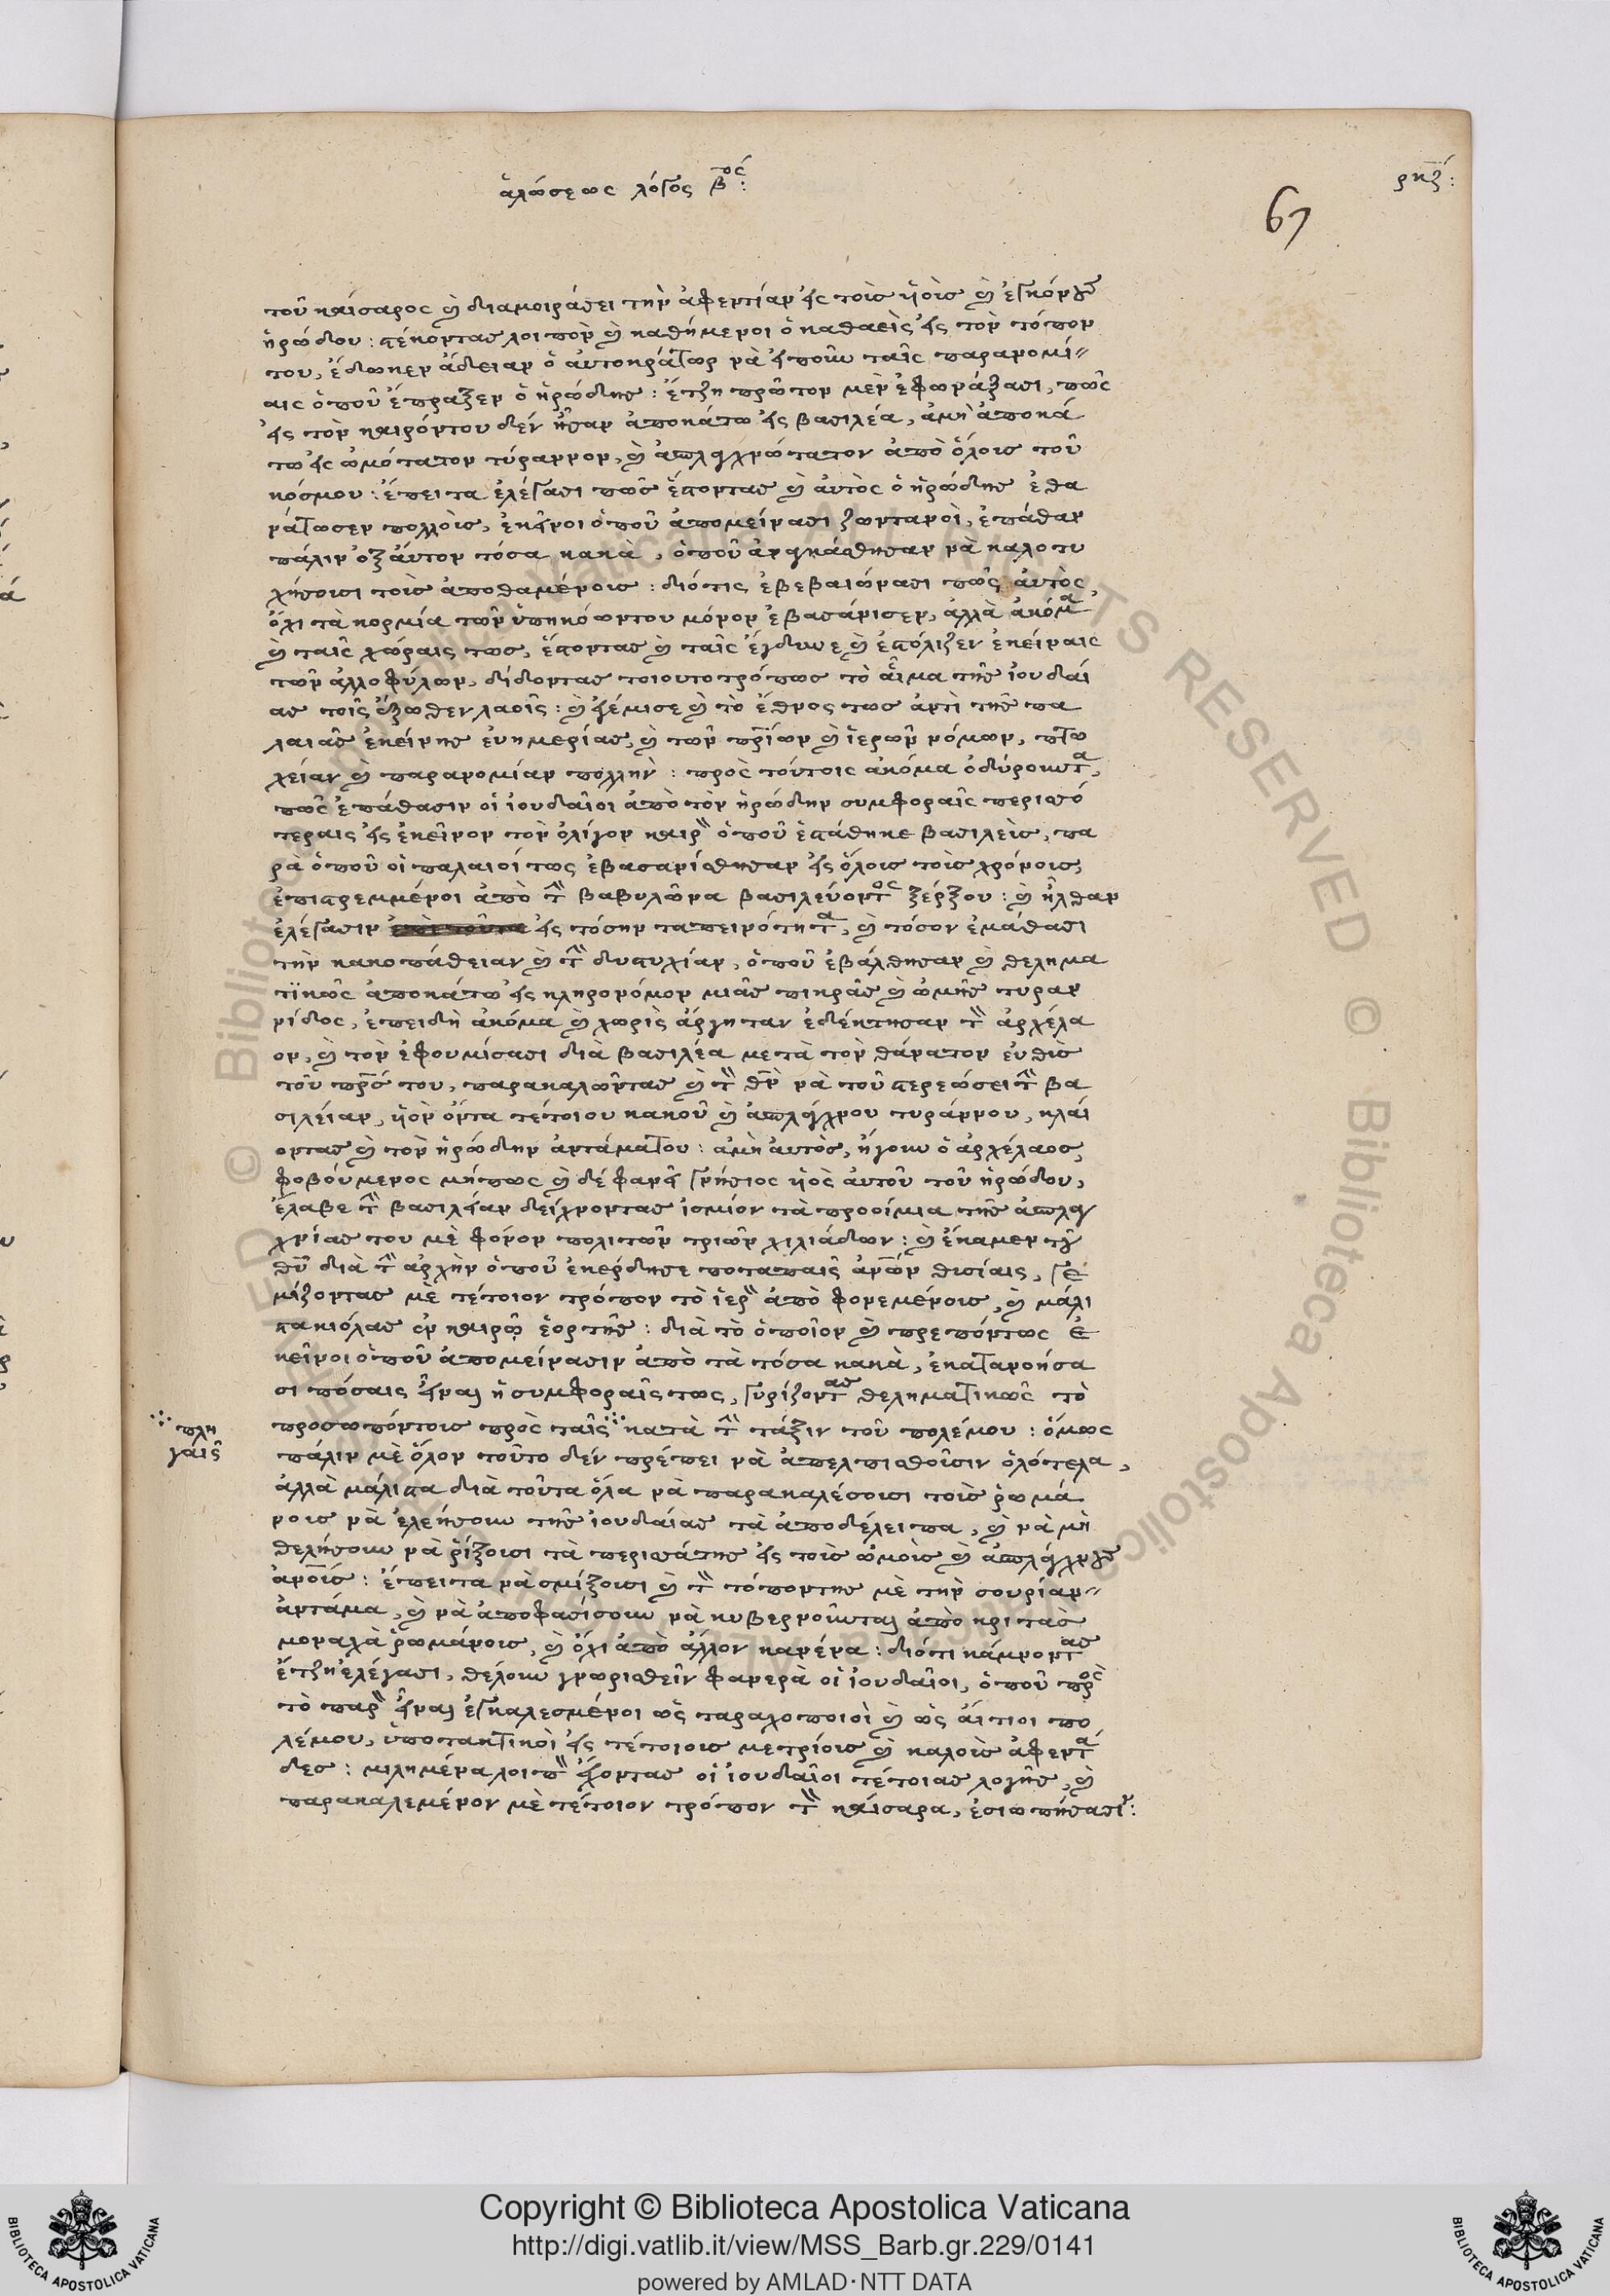 ἁλώσεως λόγος βος:
ρκζ:
67
τοῦ καίσαρος καὶ διαμοιράσει τὴν ἀφεντίαν εἰς τοὺς ὑιοὺς καὶ ἐγκόνους
ἡρώδου: στέκοντας λοιπὸν καὶ καθήμενοι ὁ καθαεὶς εἰς τὸν τόπον
του, ἔδωκεν ἄδειαν ὁ αὐτοκράτωρ νὰ εἰποῦν ταῖς παρανομί-
αις ὁποῦ ἔπραξεν ὁ ἡρώδης: ἔτζη πρῶτον μὲν ἐφωνάξασι, πῶς
εἰς τὸν καιρόντου δέν ἦσαν ἀποκάτω εἰς βασιλέα, ἀμὴ ἀποκά
τω εἰς ὠμότατον τύραννον, καὶ ἀπλαχνώτατον ἀπὸ ὅλους τοῦ
κόσμου: ἔπειτα ἐλέγασι πῶς ἔστοντας καὶ ἀυτὸς ὁ ἡρώδης ἐθα
νάτωσεν πολλοὺς, ἐκεῖνοι ὁποῦ ἀπομείνασι ζωντανοὶ, ἐπάθαν
πάλιν ὀξάυτον τόσα κακὰ, ὁποῦ ἀναγκάσθησαν νὰ καλοτυ
χήσουσι τοὺς ἀποθαμένους: διότις ἐβεβαιώνασι πῶς ἀυτὸς
ὄχι τὰ κορμία τῶν ὑπηκόωντου μόνον ἐβασάνισεν, ἀλλὰ ἀκόμα
καὶ ταῖς χώραις τως, ἔστοντας καὶ ταῖς ἔγδυνε καὶ ἐστόλιζεν ἐκείναις
τῶν ἀλλοφύλων, δίδοντας τοιουτοτρόπως τὸ αἷμα τῆς ἰουδαί
ας τοῖς ἔξωθεν λαοῖς: καὶ ἐγέμισε καὶ τὸ ἔθνος τως ἀντὶ τῆς πα
λαιᾶς ἐκείνης ἐυημερίας, καὶ τῶν πρίων καὶ ἱερῶν νόμων, πτω
χείαν καὶ παρανομίαν πολλὴν: πρὸς τούτοις ἀκόμα ὀδύρουντα,
πῶς ἐπάθασιν οἱ ἰουδαῖοι ἀπὸ τὸν ἡρώδην συμφοραῖς περισσό
τεραις εἰς ἐκεῖνον τὸν ὀλίγον καιρὸν ὁποῦ ἐστάθηκε βασιλεὺς, πα
ρὰ ὁποῦ οἱ παλαιοί τως ἐβασανίσθησαν εἰς ὅλους τοὺς χρόνους,
ἐπιστρεμμένοι ἀπὸ τὴν βαβυλῶνα βασιλεύοντος ξέρξου: καὶ ἦλθαν
ἐλέγασιν εἰς τόσην ταπεινότητα, καὶ τόσον ἐμάθασι
τὴν κακοπάθειαν καὶ τὴν δυστυχίαν, ὁποῦ ἐβάλθησαν καὶ θελημα
τικῶς ἀποκάτω εἰς κληρονόμον μιᾶς πικρᾶς καὶ ὠμῆς τυραν
νίδος, ἐπειδὴ ἀκόμα καὶ χωρὶς ἄργηταν ἐδέκτησαν τὸν ἀρχέλα
ον, καὶ τὸν ἐφουμίσασι διὰ βασιλέα μετὰ τὸν θάνατον ἐυθὺς
τοῦ πρς του, παρακαλῶντας καὶ τὸν θν νὰ τοῦ στερεώσει τὴν βα
σιλείαν, ὑιὸν ὄντα τέτοιου κακοῦ καὶ ἀπλάχνου τυράννου, κλαί
οντας καὶ τὸν ἡρώδην ἀντάματου: ἀμὴ ἀυτὸς, ἤγουν ὁ ἀρχέλαος,
φοβούμενος μήπως καὶ δέ φανεῖ γνήσιος ὑιὸς ἀυτοῦ τοῦ ἡρώδου,
ἔλαβε τὴν βασιλείαν δείχνοντας ἰσμιόν τὰ προοίμια τῆς ἀπλα
χνίας του μὲ φόνον πολιτῶν τριῶν χιλιάδων: καὶ ἔκαμεν τοῦ
θυ διὰ τὴν ἀρχὴν ὁποῦ ἐκέρδησε ποταπαῖς ἀνων θυσίαις, γε
μίζοντας μὲ τέτοιον τρόπον τὸ ἱερὸν ἀπὸ φονεμένους, καὶ μάλι
στα κιόλας ἐν καιρῷ ἑορτῆς: διὰ τὸ ὁποῖον καὶ πρεπόντως ἐ
κεῖνοι ὁποῦ ἀπομείνασιν ἀπὸ τὰ τόσα κακὰ, ἐκατανοήσα
σι πόσαις εἶναι ἡ συμφοραῖς τως, γυρίζοντας θεληματικῶς τὸ
προσωπόντους πρὸς ταῖς ∵ κατὰ τὴν τάξιν τοῦ πολέμου: ὅμως
∵ πλη
γαῖς
πάλιν μὲ ὅλον τοῦτο δέν πρέπει νὰ ἀπελπισθοῦσιν ὁλότελα,
ἀλλὰ μάλιστα διὰ τοῦτα ὅλα νὰ παρακαλέσουσι τοὺς ῥωμά
νους νὰ ἐλεήσουν τῆς ἰουδαίας τὰ ἀποδέλειπα, καὶ νὰ μὴ
θελήσουν νὰ ῥίξουσι τὰ περισσάτης εἰς τοὺς ὠμοὺς καὶ ἀπλάχνους
ἀνους: ἔπειτα νὰ σμίξουσι καὶ τὸν τόποντης μὲ τὴν συρίαν-
ἀντάμα, καὶ νὰ ἀποφασίσουν νὰ κυβερνοῦνται ἀπὸ κριτὰς
μοναχὰ ῥωμάνους, καὶ ὄχι ἀπὸ ἄλλον κανένα: διότι κάμνοντας
ἔτζη ἐλέγασι, θέλουν γνωρισθεῖν φανερὰ οἱ ἰουδαῖοι, ὁποῦ πρὸς
τὸ παρὸν εἶναι ἐγκαλεσμένοι ὡς ταραχοποιοὶ καὶ ὡς ἄιτιοι πο
λέμου, ὑποτακτικοὶ εἰς τέτοιους μετρίους καὶ καλοὺς ἀφεντά
δες: μιλημένα λοιπὸν ἔχοντας οἱ ἰουδαῖοι τέτοιας λογῆς, καὶ
παρακαλεμένον μὲ τέτοιον τρόπον τὸν καίσαρα, ἐσιωπήσασιν:
Copyright © Biblioteca Apostolica Vaticana
http://digi.vatlib.it/view/MSS_Barb.gr.229/0141
powered by AMLAD·NTT DATA